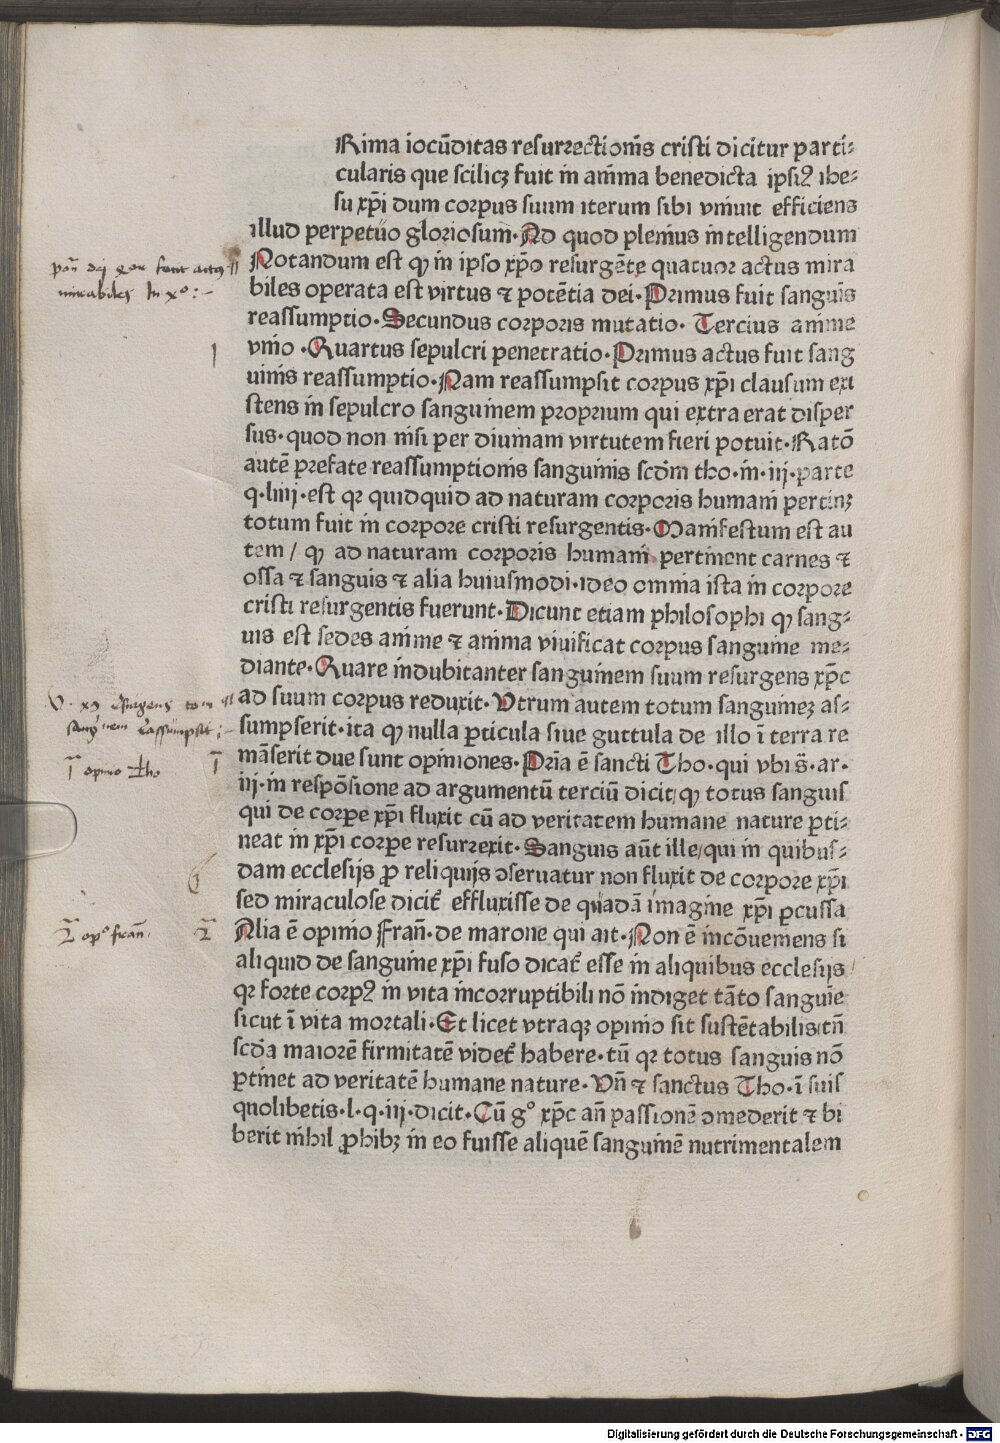 Rima iocūditas resurrectionis cristi dicitur parti-
cularis que scilicꝫ fuit in anima benedicta ipsiꝰ ihe-
su xp̄i dum corpus suum iterum sibi vniuit efficiens
illud perpetuo gloriosum. Ad quod plenius intelligendum
Notandum est ꝙ in ipso xp̄o resurgēte quatuor actus mira
biles operata est virtus ⁊ potētia dei. Primus fuit sanguīs
reassumptio. Secundus corporis mutatio. Tercius anime
vnio. Quartus sepulcri penetratio. Primus actus fuit sang
uinis reassumptio. Nam reassumpsit corpus xp̄i clausum exi
stens in sepulcro sanguinem proprium qui extra erat disper
sus. quod non nisi per diuinam virtutem fieri potuit. Ratō
autē prefate reassumptionis sanguinis scd̄m tho. in. iij. parte
q. liiij. est qr quidquid ad naturam corporis humani pertinꝫ
totum fuit in corpore cristi resurgentis. Manifestum est au
tem / ꝙ ad naturam corporis humani pertinent carnes ⁊
ossa ⁊ sanguis ⁊ alia huiusmodi. ideo omnia ista in corpore
cristi resurgentis fuerunt. Dicunt etiam philosophi ꝙ sang-
uis est sedes anime ⁊ anima viuificat corpus sanguine me-
diante. Quare indubitanter sanguinem suum resurgens xp̄c
ad suum corpus reduxit. Vtrum autem totum sanguinēꝫ as-
sumpserit. ita ꝙ nulla ꝑticula siue guttula de illo ī terra re
māserit due sunt opiniones. Pria ē sancti Tho. qui vbi s̄. ar.
iij. in respōsione ad argumentū terciū dicit/ ꝙ totus sanguis
qui de corpe xp̄i fluxit cū ad veritatem humane nature ꝑti-
neat in xp̄i corpe resurrexit. Sanguis aūt ille/ qui in quibus-
dam ecclesijs ꝓ reliquijs ꝯseruatur non fluxit de corpore xp̄i
sed miraculose dicit̄ effluxisse de quadā imagine xp̄i ꝑcussa
Alia ē opinio Frañ. de marone qui ait. Non ē incōueniens si
aliquid de sanguine xp̄i fuso dicat̄ esse in aliquibus ecclesijs
qr forte corpꝰ in vita incorruptibili nō indiget tāto sanguīe
sicut ī vita mortali. Et licet vtraqꝫ opinio sit sustētabilis/ tn̄
scd̄a maiorē firmitatē videt̄ habere. tū qr totus sanguis nō
ꝑtinet ad veritatē humane nature. Vn̄ ⁊ sanctus Tho. ī suis
quolibetis. l. q. iij. dicit. Cū gͦ xp̄c añ passionē ꝯmederit ⁊ bi
berit nihil ꝓhibꝫ in eo fuisse aliquē sanguinē nutrimentalem
mirabiles In xº :-
1
1 opinio Tho 1
2 opº frañ. 2
Digitalisierung gefördert durch die Deutsche Forschungsgemeinschaft - DFG